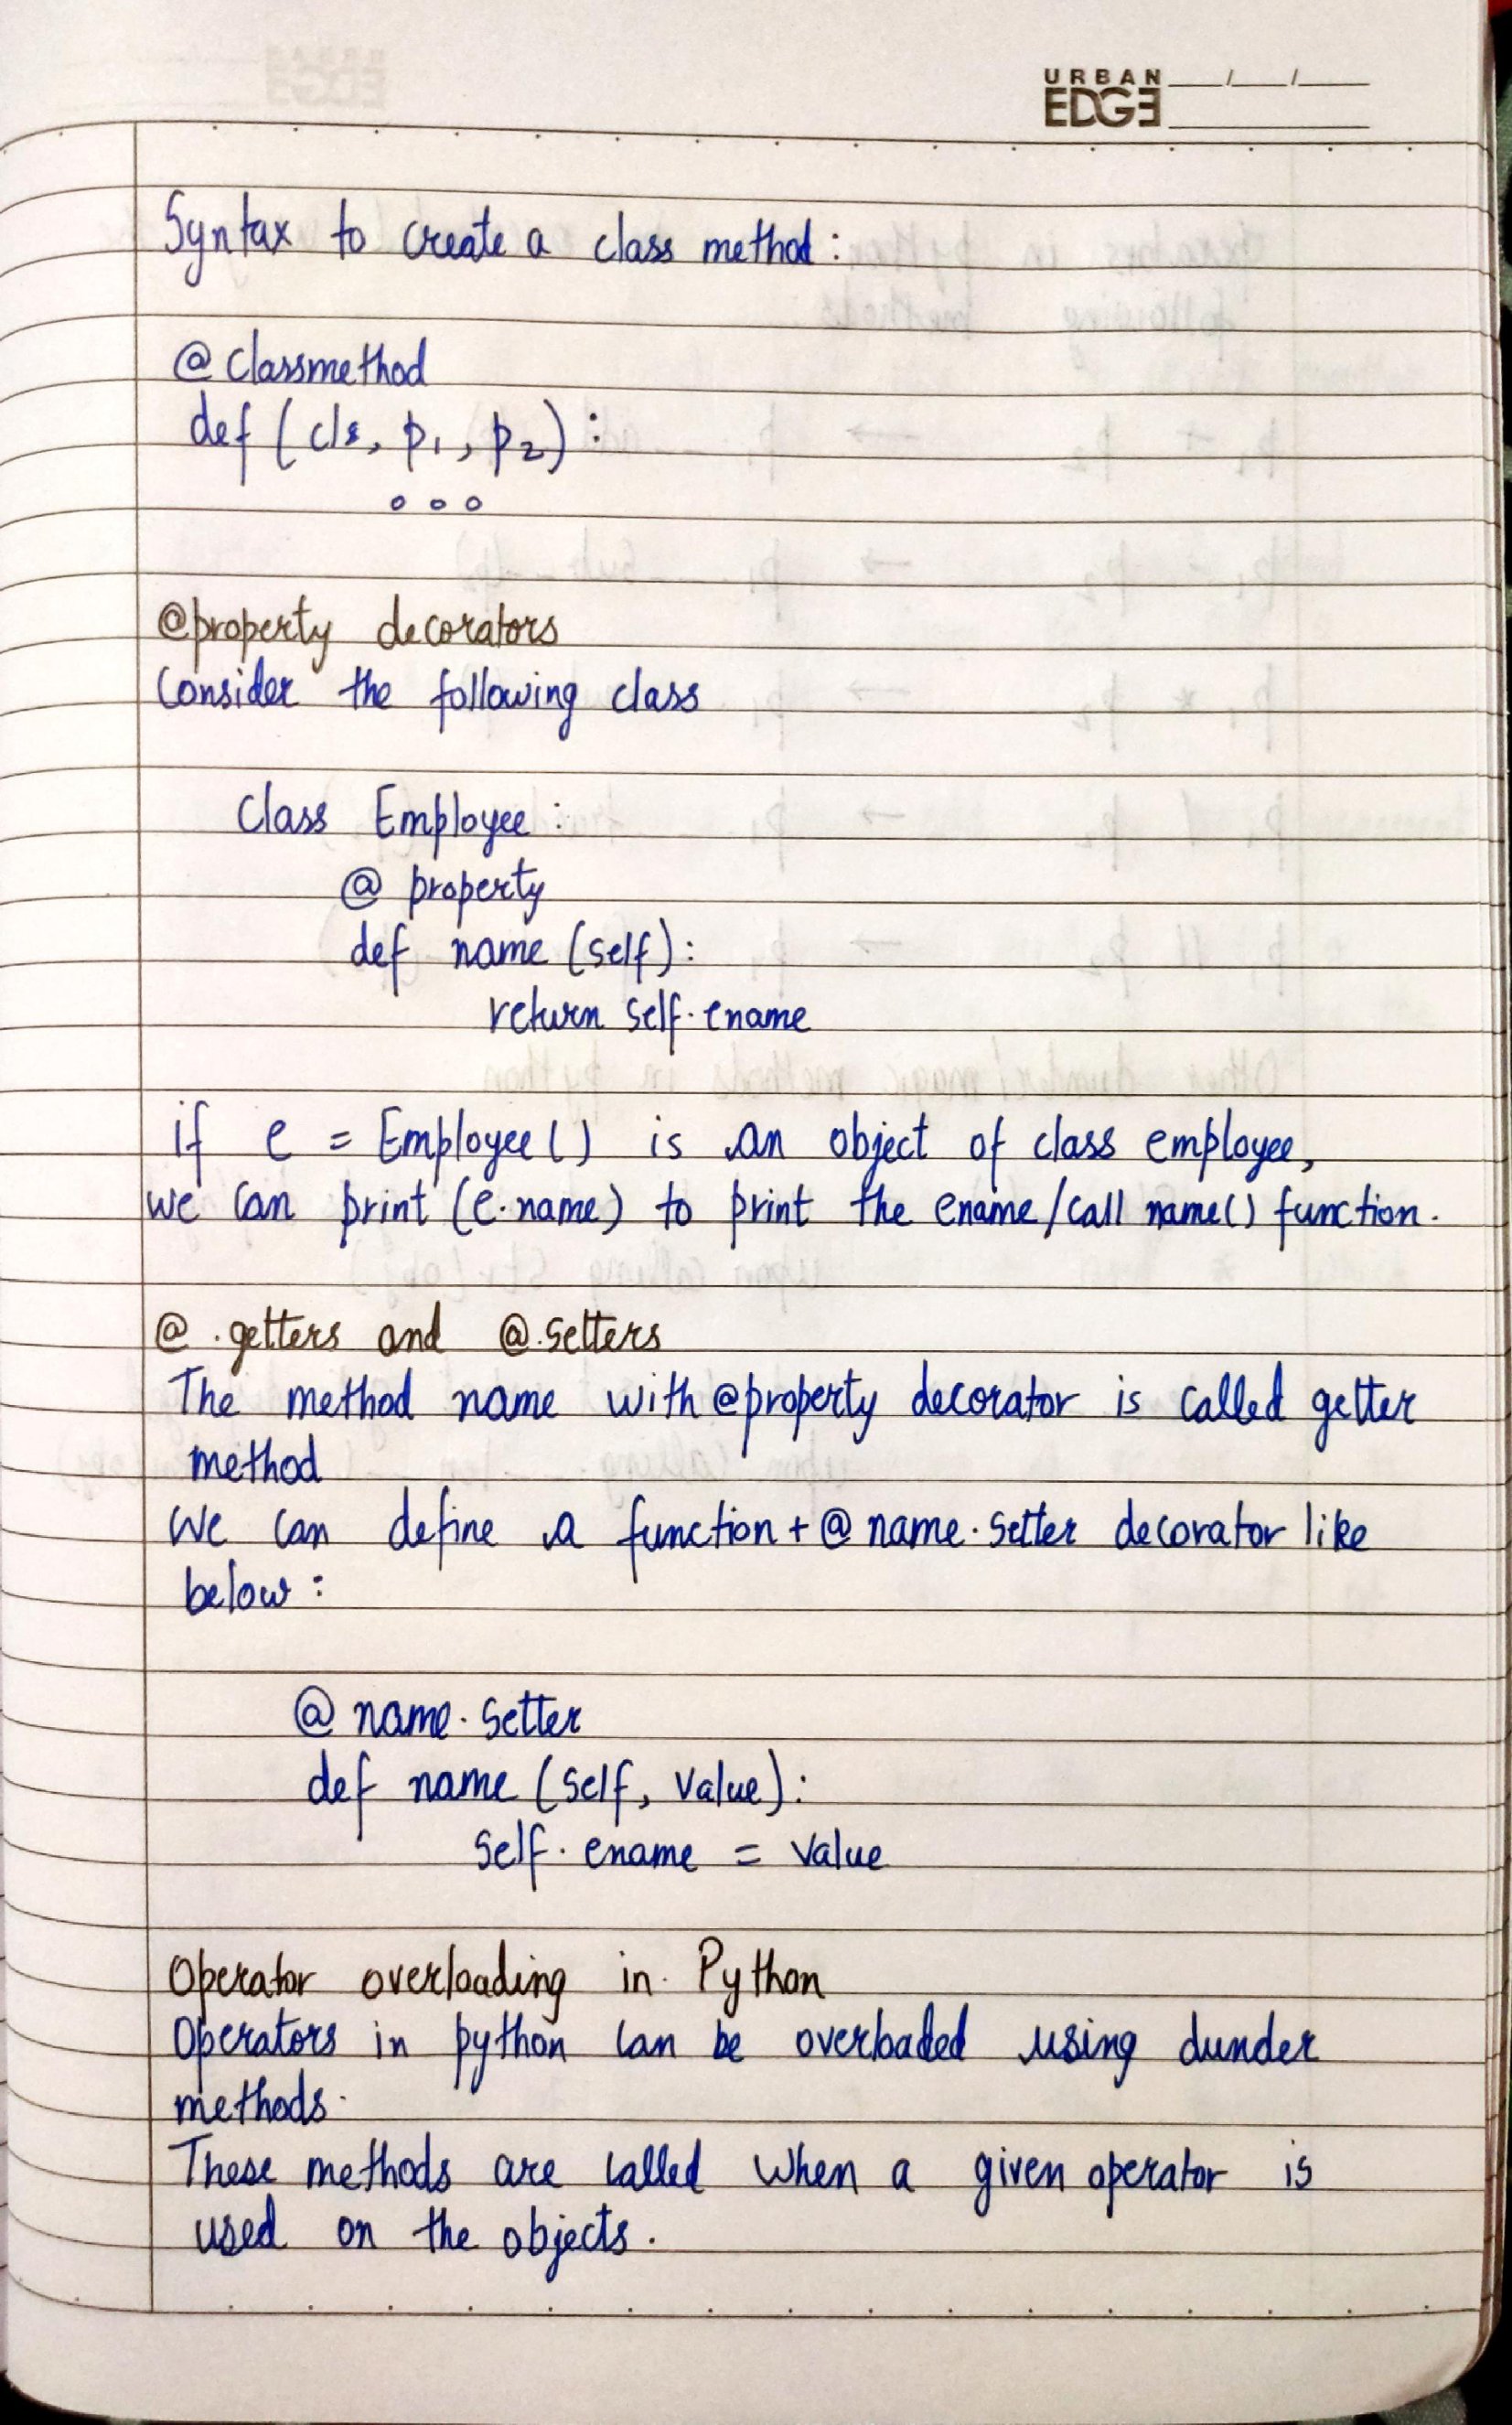 URBAN
EDGE
Syntax to create a class method:
@ classmethod
def (cls, p₁, p₂):
...
@property decorators
Consider the following class
Class Employee:
@ property
def name (self):
return self.ename
if e = Employee() is an object of class employee,
we can print (e.name) to print the ename/call name() function.
@ .getters and @.setters
The method name with @property decorator is called getter
method
we can define a function + @ name.setter decorator like
below:
@ name.setter
def name (self, value):
self.ename = value
Operator overloading in Python
Operators in python can be overloaded using dunder
methods.
These methods are called when a given operator is
used on the objects.